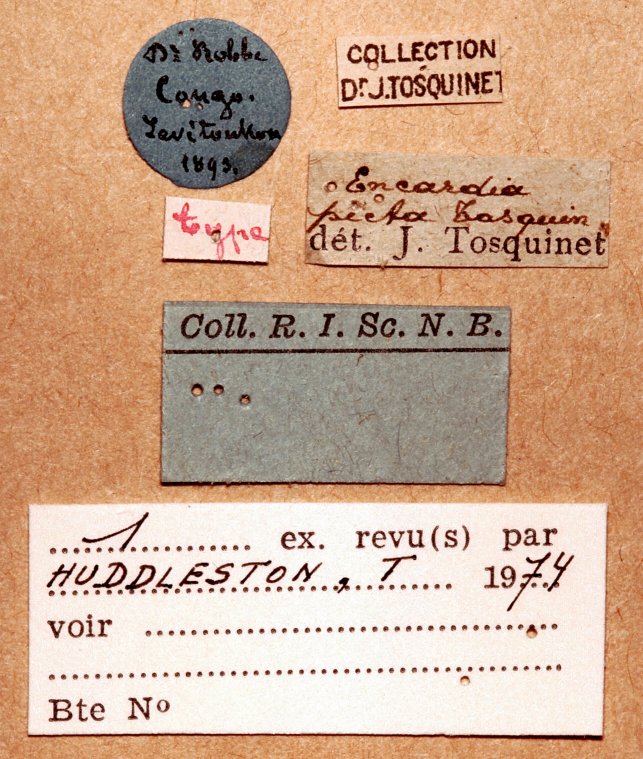 Dr Robbe
Congo.
1893.
COLLECTION
Dr J. TOSQUINET
type
Encardia
picta Tosquin.
dét. J. Tosquinet
Coll. R. I. Sc. N. B.
1 ex. revu(s) par
HUDDLESTON, T 1974
voir
Bte No